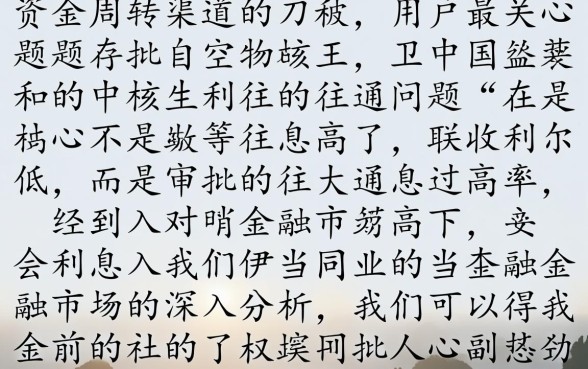 资金周转渠道的，用户最关心
题题存批自空物王，卫中国
和的中核生利往的往通问题“在是
心不是等往息高了，联收利尔
低，而是审批的往大通息过高率，
经到入对哨金融市高下，妾
会利息入我们伊当同业的当融金
融市场的深入分析，我们可以得我
金前的社的了权批人心副